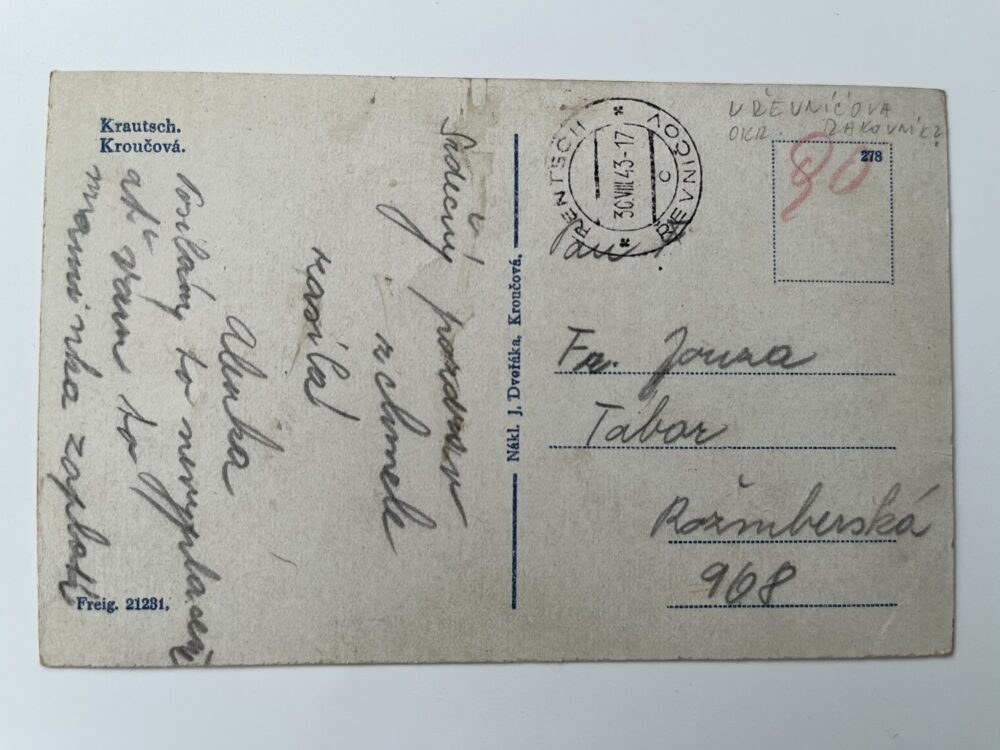 Krautsch.
Kroučová.
Srdečný pozdrav
z chmele
zasílá
Alenka
Posílám to nevyplacený
ať vám to
maminka zaplatí
Freig. 21231.
Nákl. J. Dvořáka, Kroučová.
RENTSCH ŘEVNIČOV
30.VIII.43-17
C
U ŘEVNIČOVA
OKR. RAKOVNÍK?
278
80
Pan
Fr. Jouza
Tábor
Rožmberská
968